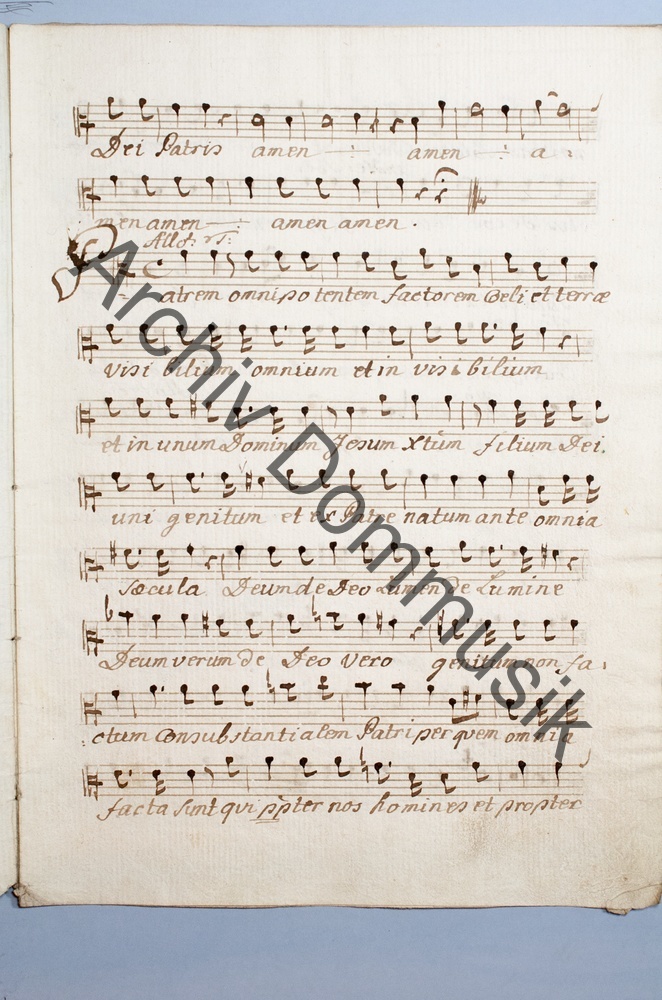 Dei Patris amen -:- amen -:- a-
men amen -:- amen amen.
All⁰:
Patrem omnipotentem factorem Coeli et terræ
visi bilium omnium et in visi bilium
et in unum Dominum Jesum Xtum filium Dei.
uni genitum et ex Patre natum ante omnia
sæcula Deum de Deo Lumen de Lumine
Deum verum de Deo vero genitum non fa-
ctum Consubstantialem Patri per quem omnia
facta sunt qui ppter nos homines et propter
Archiv Dommusik